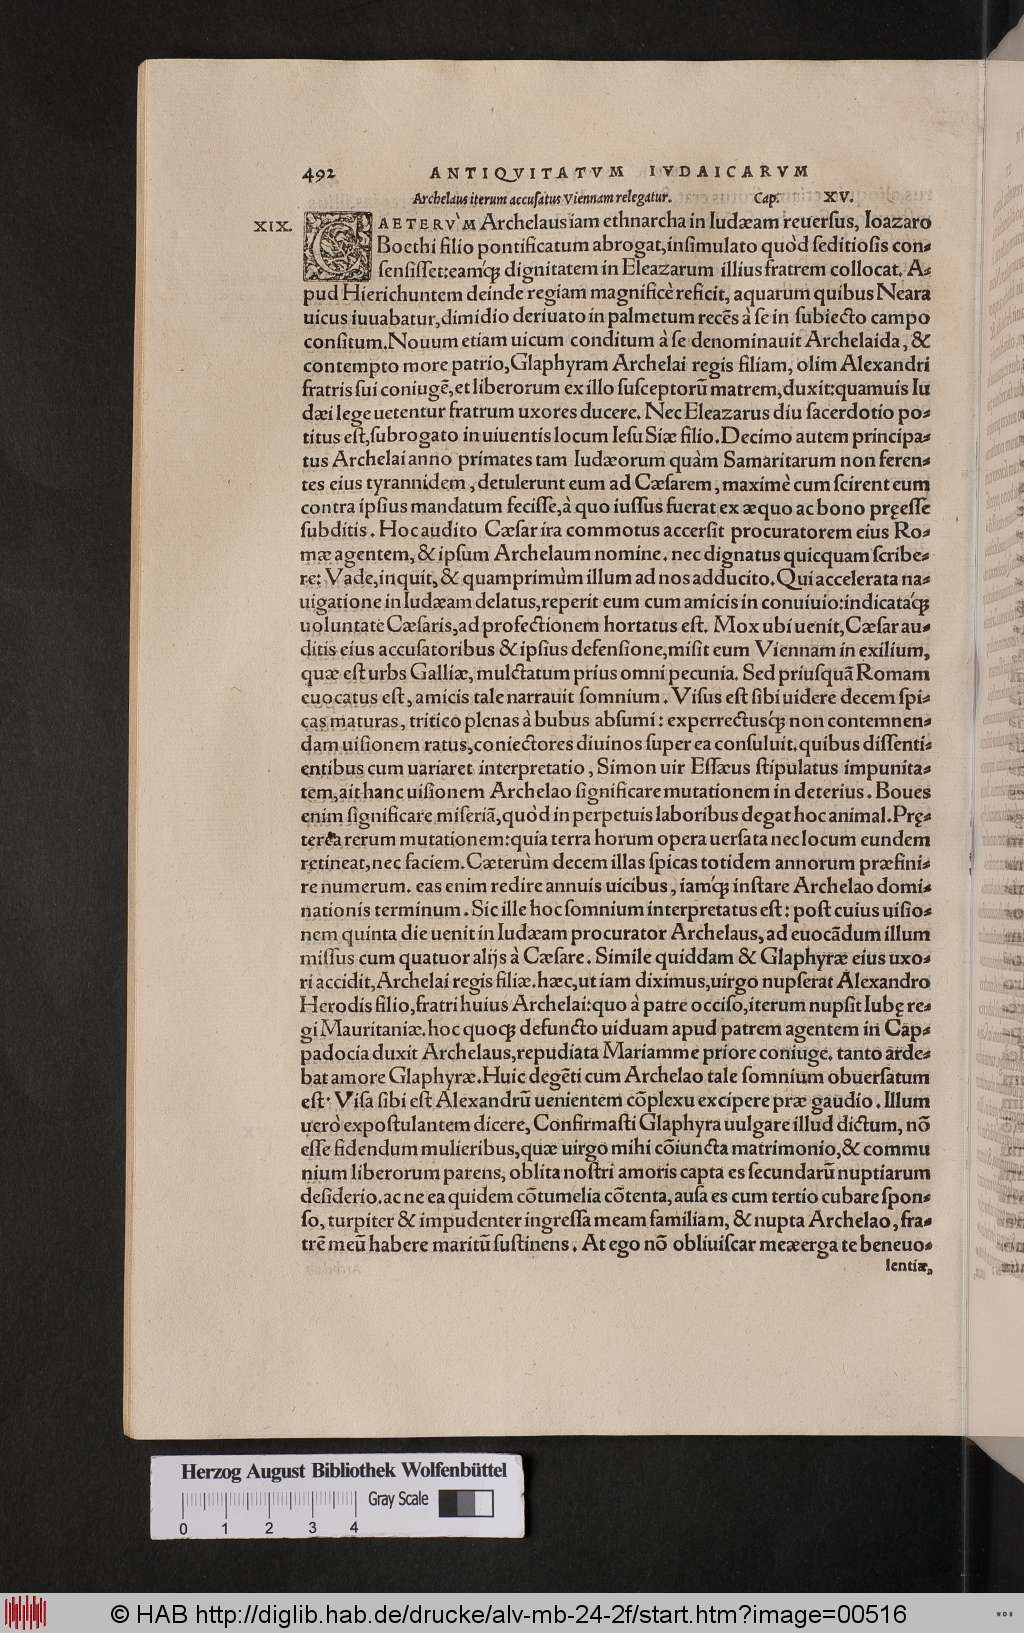 492 ANTIQVITATVM IVDAICARVM
Archelaus iterum accusatus Viennam relegatur. Cap. XV.
XIX. CAETERV̀M Archelaus iam ethnarcha in Iudæam reuersus, Ioazaro
Boethi filio pontificatum abrogat, insimulato quòd seditiosis con⸗
sensisset: eamq́ꝫ dignitatem in Eleazarum illius fratrem collocat. A⸗
pud Hierichuntem deinde regiam magnificè reficit, aquarum quibus Neara
uicus iuuabatur, dimidio deriuato in palmetum recẽs à se in subiecto campo
consitum. Nouum etiam uicum conditum à se denominauit Archelaida, &
contempto more patrio, Glaphyram Archelai regis filiam, olim Alexandri
fratris sui coniugẽ, et liberorum ex illo susceptorũ matrem, duxit: quamuis Iu
dæi lege uetentur fratrum uxores ducere. Nec Eleazarus diu sacerdotio po⸗
titus est, subrogato in uiuentis locum Iesu Siæ filio. Decimo autem principa⸗
tus Archelai anno primates tam Iudæorum quàm Samaritarum non feren⸗
tes eius tyrannidem, detulerunt eum ad Cæsarem, maximè cum scirent eum
contra ipsius mandatum fecisse, à quo iussus fuerat ex æquo ac bono pręesse
subditis. Hoc audito Cæsar ira commotus accersit procuratorem eius Ro⸗
mæ agentem, & ipsum Archelaum nomine. nec dignatus quicquam scribe⸗
re: Vade, inquit, & quamprimùm illum ad nos adducito. Qui accelerata na⸗
uigatione in Iudæam delatus, reperit eum cum amicis in conuiuio: indicataq́ꝫ
uoluntate Cæsaris, ad profectionem hortatus est. Mox ubi uenit, Cæsar au⸗
ditis eius accusatoribus & ipsius defensione, misit eum Viennam in exilium,
quæ est urbs Galliæ, mulctatum prius omni pecunia. Sed priusquã Romam
euocatus est, amicis tale narrauit somnium. Visus est sibi uidere decem spi⸗
cas maturas, tritico plenas à bubus absumi: experrectusq́ꝫ non contemnen⸗
dam uisionem ratus, coniectores diuinos super ea consuluit. quibus dissenti⸗
entibus cum uariaret interpretatio, Simon uir Essæus stipulatus impunita⸗
tem, ait hanc uisionem Archelao significare mutationem in deterius. Boues
enim significare miseriã, quòd in perpetuis laboribus degat hoc animal. Prę⸗
terea rerum mutationem: quia terra horum opera uersata nec locum eundem
retineat, nec faciem. Cæterùm decem illas spicas totidem annorum præfini⸗
re numerum. eas enim redire annuis uicibus, iamq́ꝫ instare Archelao domi⸗
nationis terminum. Sic ille hoc somnium interpretatus est: post cuius uisio⸗
nem quinta die uenit in Iudæam procurator Archelaus, ad euocãdum illum
missus cum quatuor alijs à Cæsare. Simile quiddam & Glaphyræ eius uxo⸗
ri accidit, Archelai regis filiæ. hæc, ut iam diximus, uirgo nupserat Alexandro
Herodis filio, fratri huius Archelai: quo à patre occiso, iterum nupsit Iubę re⸗
gi Mauritaniæ. hoc quoqꝫ defuncto uiduam apud patrem agentem in Cap⸗
padocia duxit Archelaus, repudiata Mariamme priore coniuge. tanto arde⸗
bat amore Glaphyræ. Huic degẽti cum Archelao tale somnium obuersatum
est. Visa sibi est Alexandrũ uenientem cõplexu excipere præ gaudio. Illum
uerò expostulantem dicere, Confirmasti Glaphyra uulgare illud dictum, nõ
esse fidendum mulieribus, quæ uirgo mihi cõiuncta matrimonio, & commu
nium liberorum parens, oblita nostri amoris capta es secundarũ nuptiarum
desiderio. ac ne ea quidem cõtumelia cõtenta, ausa es cum tertio cubare spon⸗
so, turpiter & impudenter ingressa meam familiam, & nupta Archelao, fra⸗
trẽ meũ habere maritũ sustinens. At ego nõ obliuiscar meæ erga te beneuo⸗
lentiæ,
Herzog August Bibliothek Wolfenbüttel
Gray Scale
0 1 2 3 4
© HAB http://diglib.hab.de/drucke/alv-mb-24-2f/start.htm?image=00516